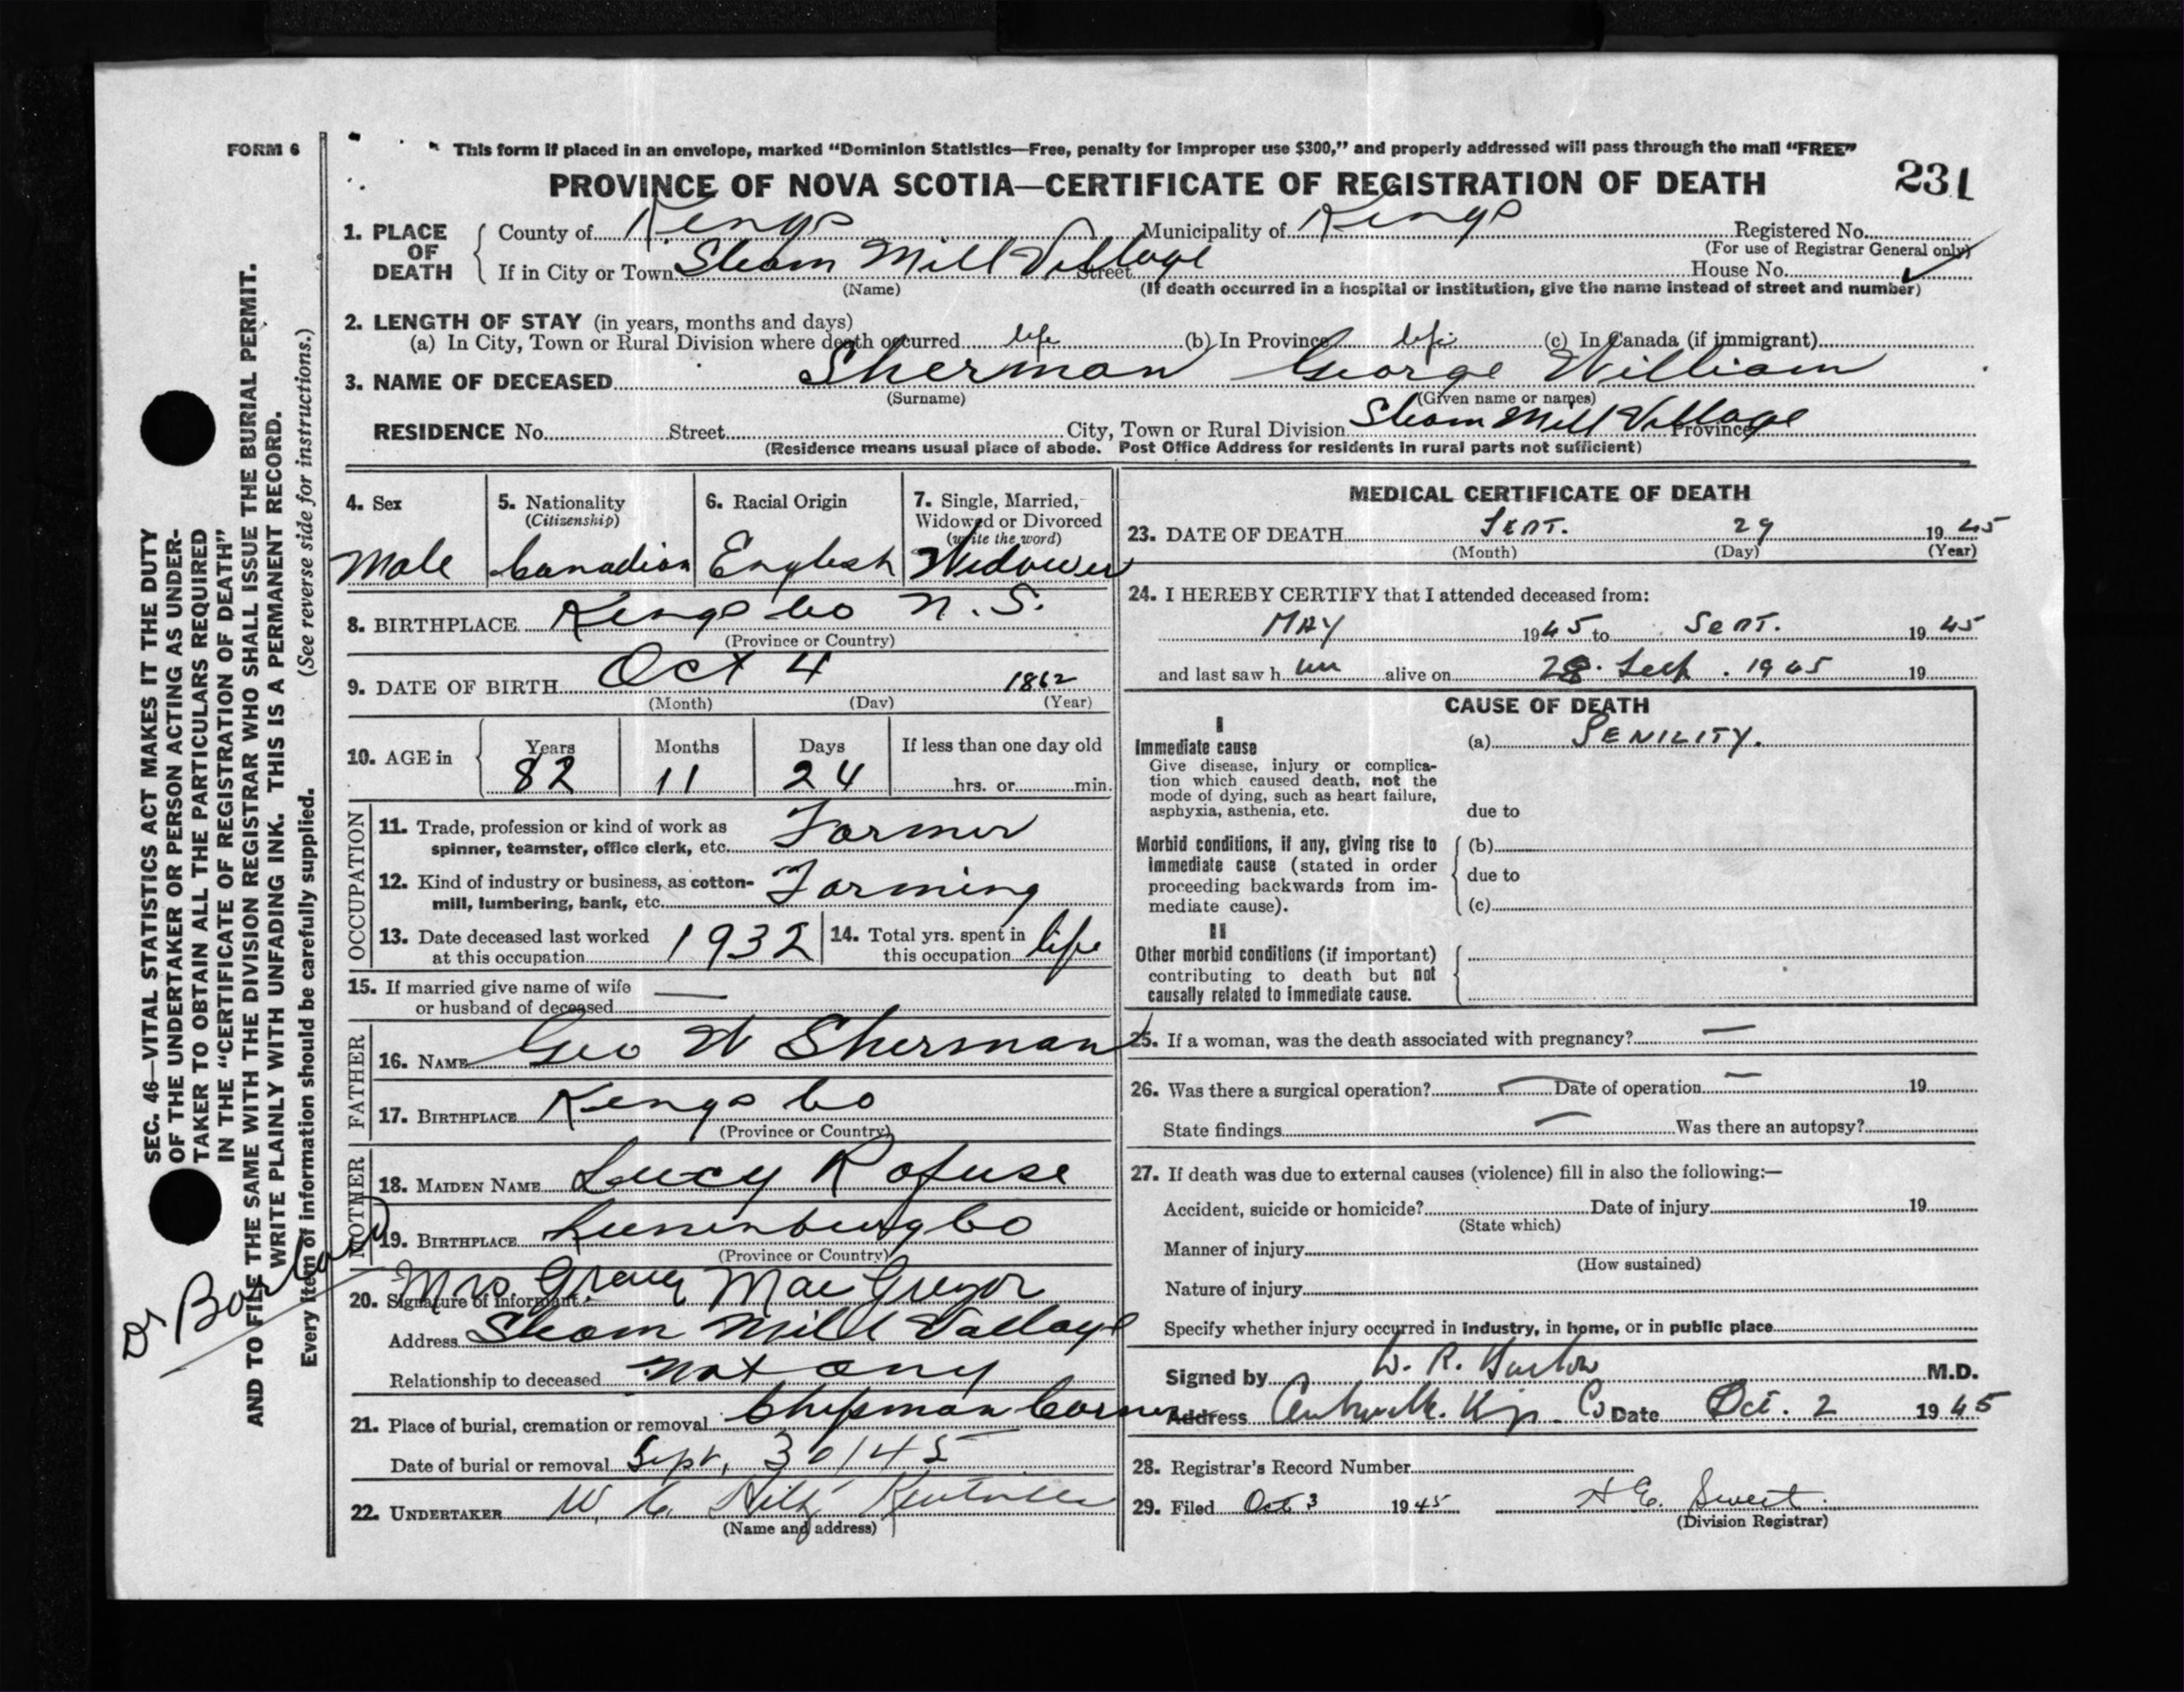 FORM 6
This form if placed in an envelope, marked "Dominion Statistics—Free, penalty for improper use $300," and properly addressed will pass through the mail "FREE"
PROVINCE OF NOVA SCOTIA—CERTIFICATE OF REGISTRATION OF DEATH 231
1. PLACE OF DEATH
County of Kings Municipality of Kings Registered No.
(For use of Registrar General only)
If in City or Town Steam Mill Village Street House No.
(Name) (If death occurred in a hospital or institution, give the name instead of street and number)
2. LENGTH OF STAY (in years, months and days)
(a) In City, Town or Rural Division where death occurred life (b) In Province life (c) In Canada (if immigrant)
3. NAME OF DECEASED Sherman George William
(Surname) (Given name or names)
RESIDENCE No. Street City, Town or Rural Division Steam Mill Village Province
(Residence means usual place of abode. Post Office Address for residents in rural parts not sufficient)
4. Sex
Male
5. Nationality
(Citizenship)
Canadian
6. Racial Origin
English
7. Single, Married,
Widowed or Divorced
(write the word)
Widower
8. BIRTHPLACE Kings Co N.S.
(Province or Country)
9. DATE OF BIRTH Oct 4 1862
(Month) (Day) (Year)
10. AGE in
Years Months Days If less than one day old
82 11 24 hrs. or min.
OCCUPATION
11. Trade, profession or kind of work as
spinner, teamster, office clerk, etc. Farmer
12. Kind of industry or business, as cotton-
mill, lumbering, bank, etc. Farming
13. Date deceased last worked
at this occupation 1932
14. Total yrs. spent in
this occupation life
15. If married give name of wife
or husband of deceased —
FATHER
16. NAME Geo W Sherman
17. BIRTHPLACE Kings Co
(Province or Country)
MOTHER
18. MAIDEN NAME Lucy Rofuse
19. BIRTHPLACE Lunenburg Co
(Province or Country)
20. Signature of informant Mrs MacGregor
Address Steam Mill Village
Relationship to deceased not any
21. Place of burial, cremation or removal Chipman Corner
Date of burial or removal Sept. 30/45
22. UNDERTAKER W. Kentville
(Name and address)
MEDICAL CERTIFICATE OF DEATH
23. DATE OF DEATH SEPT. 29 1945
(Month) (Day) (Year)
24. I HEREBY CERTIFY that I attended deceased from:
MAY 1945 to SEPT. 1945
and last saw h im alive on 28. Sept. 1945 19
CAUSE OF DEATH
I
Immediate cause
Give disease, injury or complica-
tion which caused death, not the
mode of dying, such as heart failure,
asphyxia, asthenia, etc.
(a) SENILITY.
due to
Morbid conditions, if any, giving rise to
immediate cause (stated in order
proceeding backwards from im-
mediate cause).
(b)
due to
(c)
II
Other morbid conditions (if important)
contributing to death but not
causally related to immediate cause.
25. If a woman, was the death associated with pregnancy? —
26. Was there a surgical operation? — Date of operation — 19
State findings — Was there an autopsy?
27. If death was due to external causes (violence) fill in also the following:—
Accident, suicide or homicide? Date of injury 19
(State which)
Manner of injury
(How sustained)
Nature of injury
Specify whether injury occurred in industry, in home, or in public place
Signed by W. R. M.D.
Address Co Date Oct. 2 1945
28. Registrar's Record Number
29. Filed Oct 3 1945 H E. Sweet
(Division Registrar)
SEC. 46—VITAL STATISTICS ACT MAKES IT THE DUTY
OF THE UNDERTAKER OR PERSON ACTING AS UNDER-
TAKER TO OBTAIN ALL THE PARTICULARS REQUIRED
IN THE "CERTIFICATE OF REGISTRATION OF DEATH"
AND TO FILE THE SAME WITH THE DIVISION REGISTRAR WHO SHALL ISSUE THE BURIAL PERMIT.
WRITE PLAINLY WITH UNFADING INK. THIS IS A PERMANENT RECORD.
Every item of information should be carefully supplied. (See reverse side for instructions.)
Dr